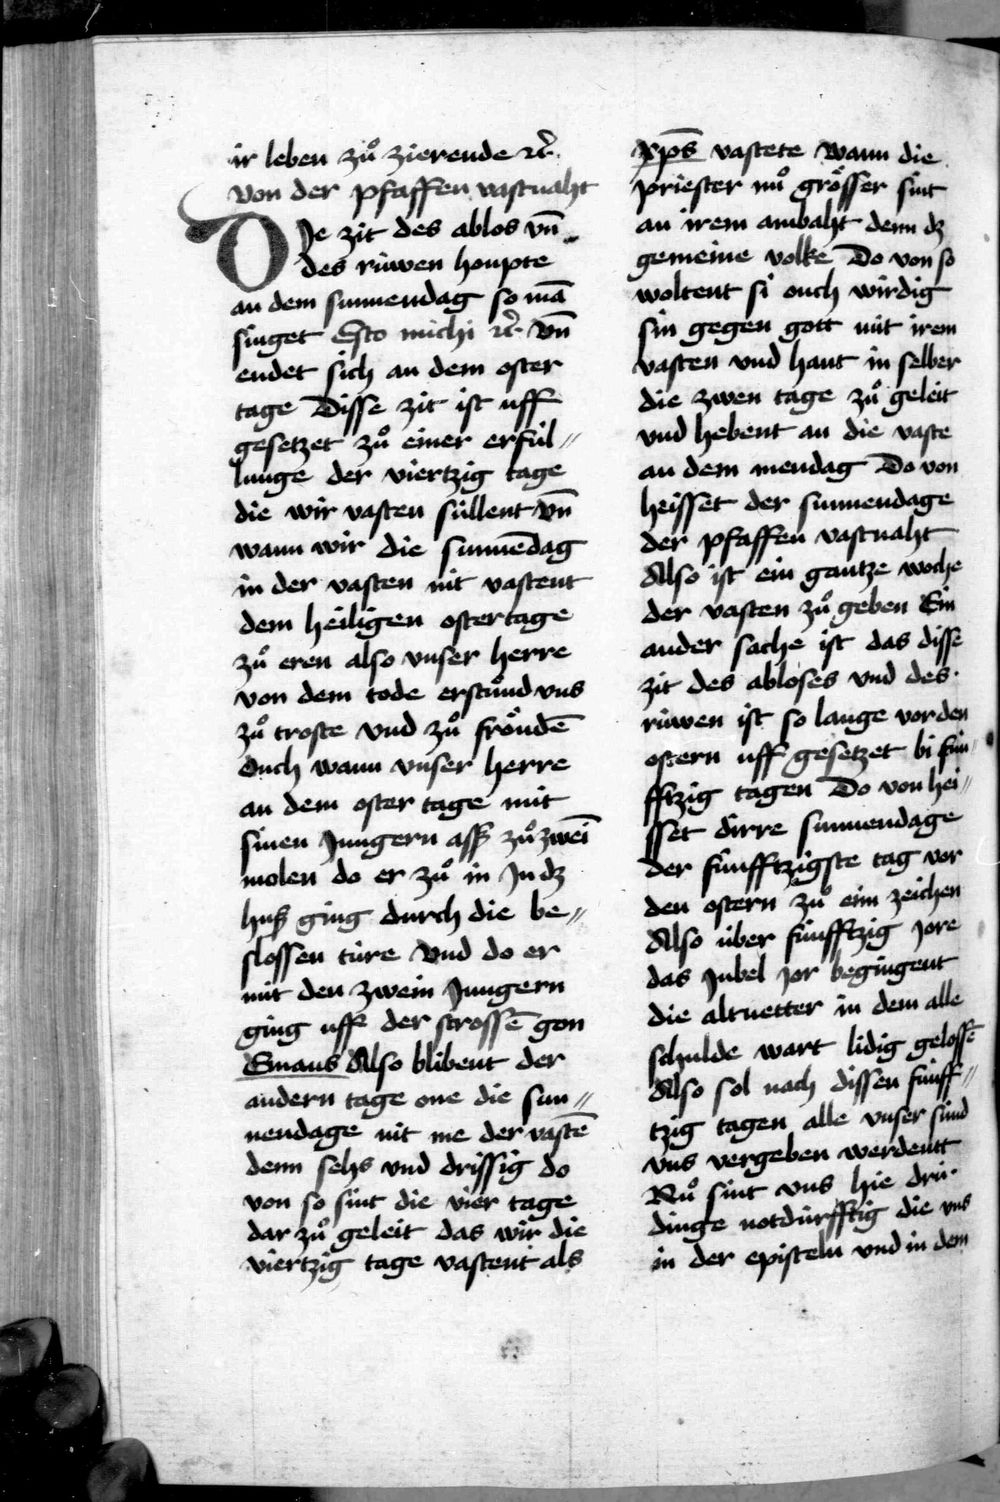 ir leben zuͦ zierende ꝛc̃.
von der pfaffen vastnaht
DJe zit des ablos vn̄
des rúwen houpte
an dem sunnendag so mā
singet Esto michi ꝛc̃ vn̄
endet sich an dem oster
tage Disse zit ist uff
gesetzet zuͦ einer erfúl〃
lunge der viertzig tage
die wir vasten súllent vn̄
wann wir die sunnēdag
in der vasten nit vastent
dem heiligen ostertage
zuͦ eren also vnser herre
von dem tode erstuͦnd vns
zuͦ troste vnd zuͦ froͤudē
Ouch wann vnser herre
an dem oster tage mit
sinen Jungern asß zuͦ zwein̄
molen do er zuͦ in Jn dz
husß ging durch die be〃
slossen túre vnd do er
mit den zwein Jungern
ging uff der strossē gon
Emaus Also blibent der
andern tage one die sun〃
nendage nit me der vastē
denn sehs vnd drissig do
von so sint die vier tage
dar zuͦ geleit das wir die
viertzig tage vastent als
xp̄s vastete wann die
priester nuͦ groͤsser sint
an irem ambaht denn dz
gemeine volke Do von so
woltent si ouch wirdig
sin gegen gott mit irem
vasten vnd hant in selber
die zwen tage zuͦ geleit
vnd hebent an die vaste
an dem mendag Do von
heisset der sunnendage
der pfaffen vastnaht
Also ist ein gantze woche
der vasten zuͦ geben Ein
ander sache ist das disse
zit des abloses vnd des
rúwen ist so lange vor den
ostern uff gesetzet bi fún〃
fftzig tagen Do von hei〃
sset dirre sunnendage
der fúnfftzigste tag vor
den ostern zuͦ eim zeichen
Also úber fúnfftzig Jore
das Jubel Jor begingent
die altvetter in dem alle
schulde wart lidig gelossē
Also sol nach dissen fúnff〃
tzig tagen alle vnser súnd
vns vergeben werdentt
Nuͦ sint vns hie drú
dinge notdúrfftig die vns
in der episteln vnd in dem